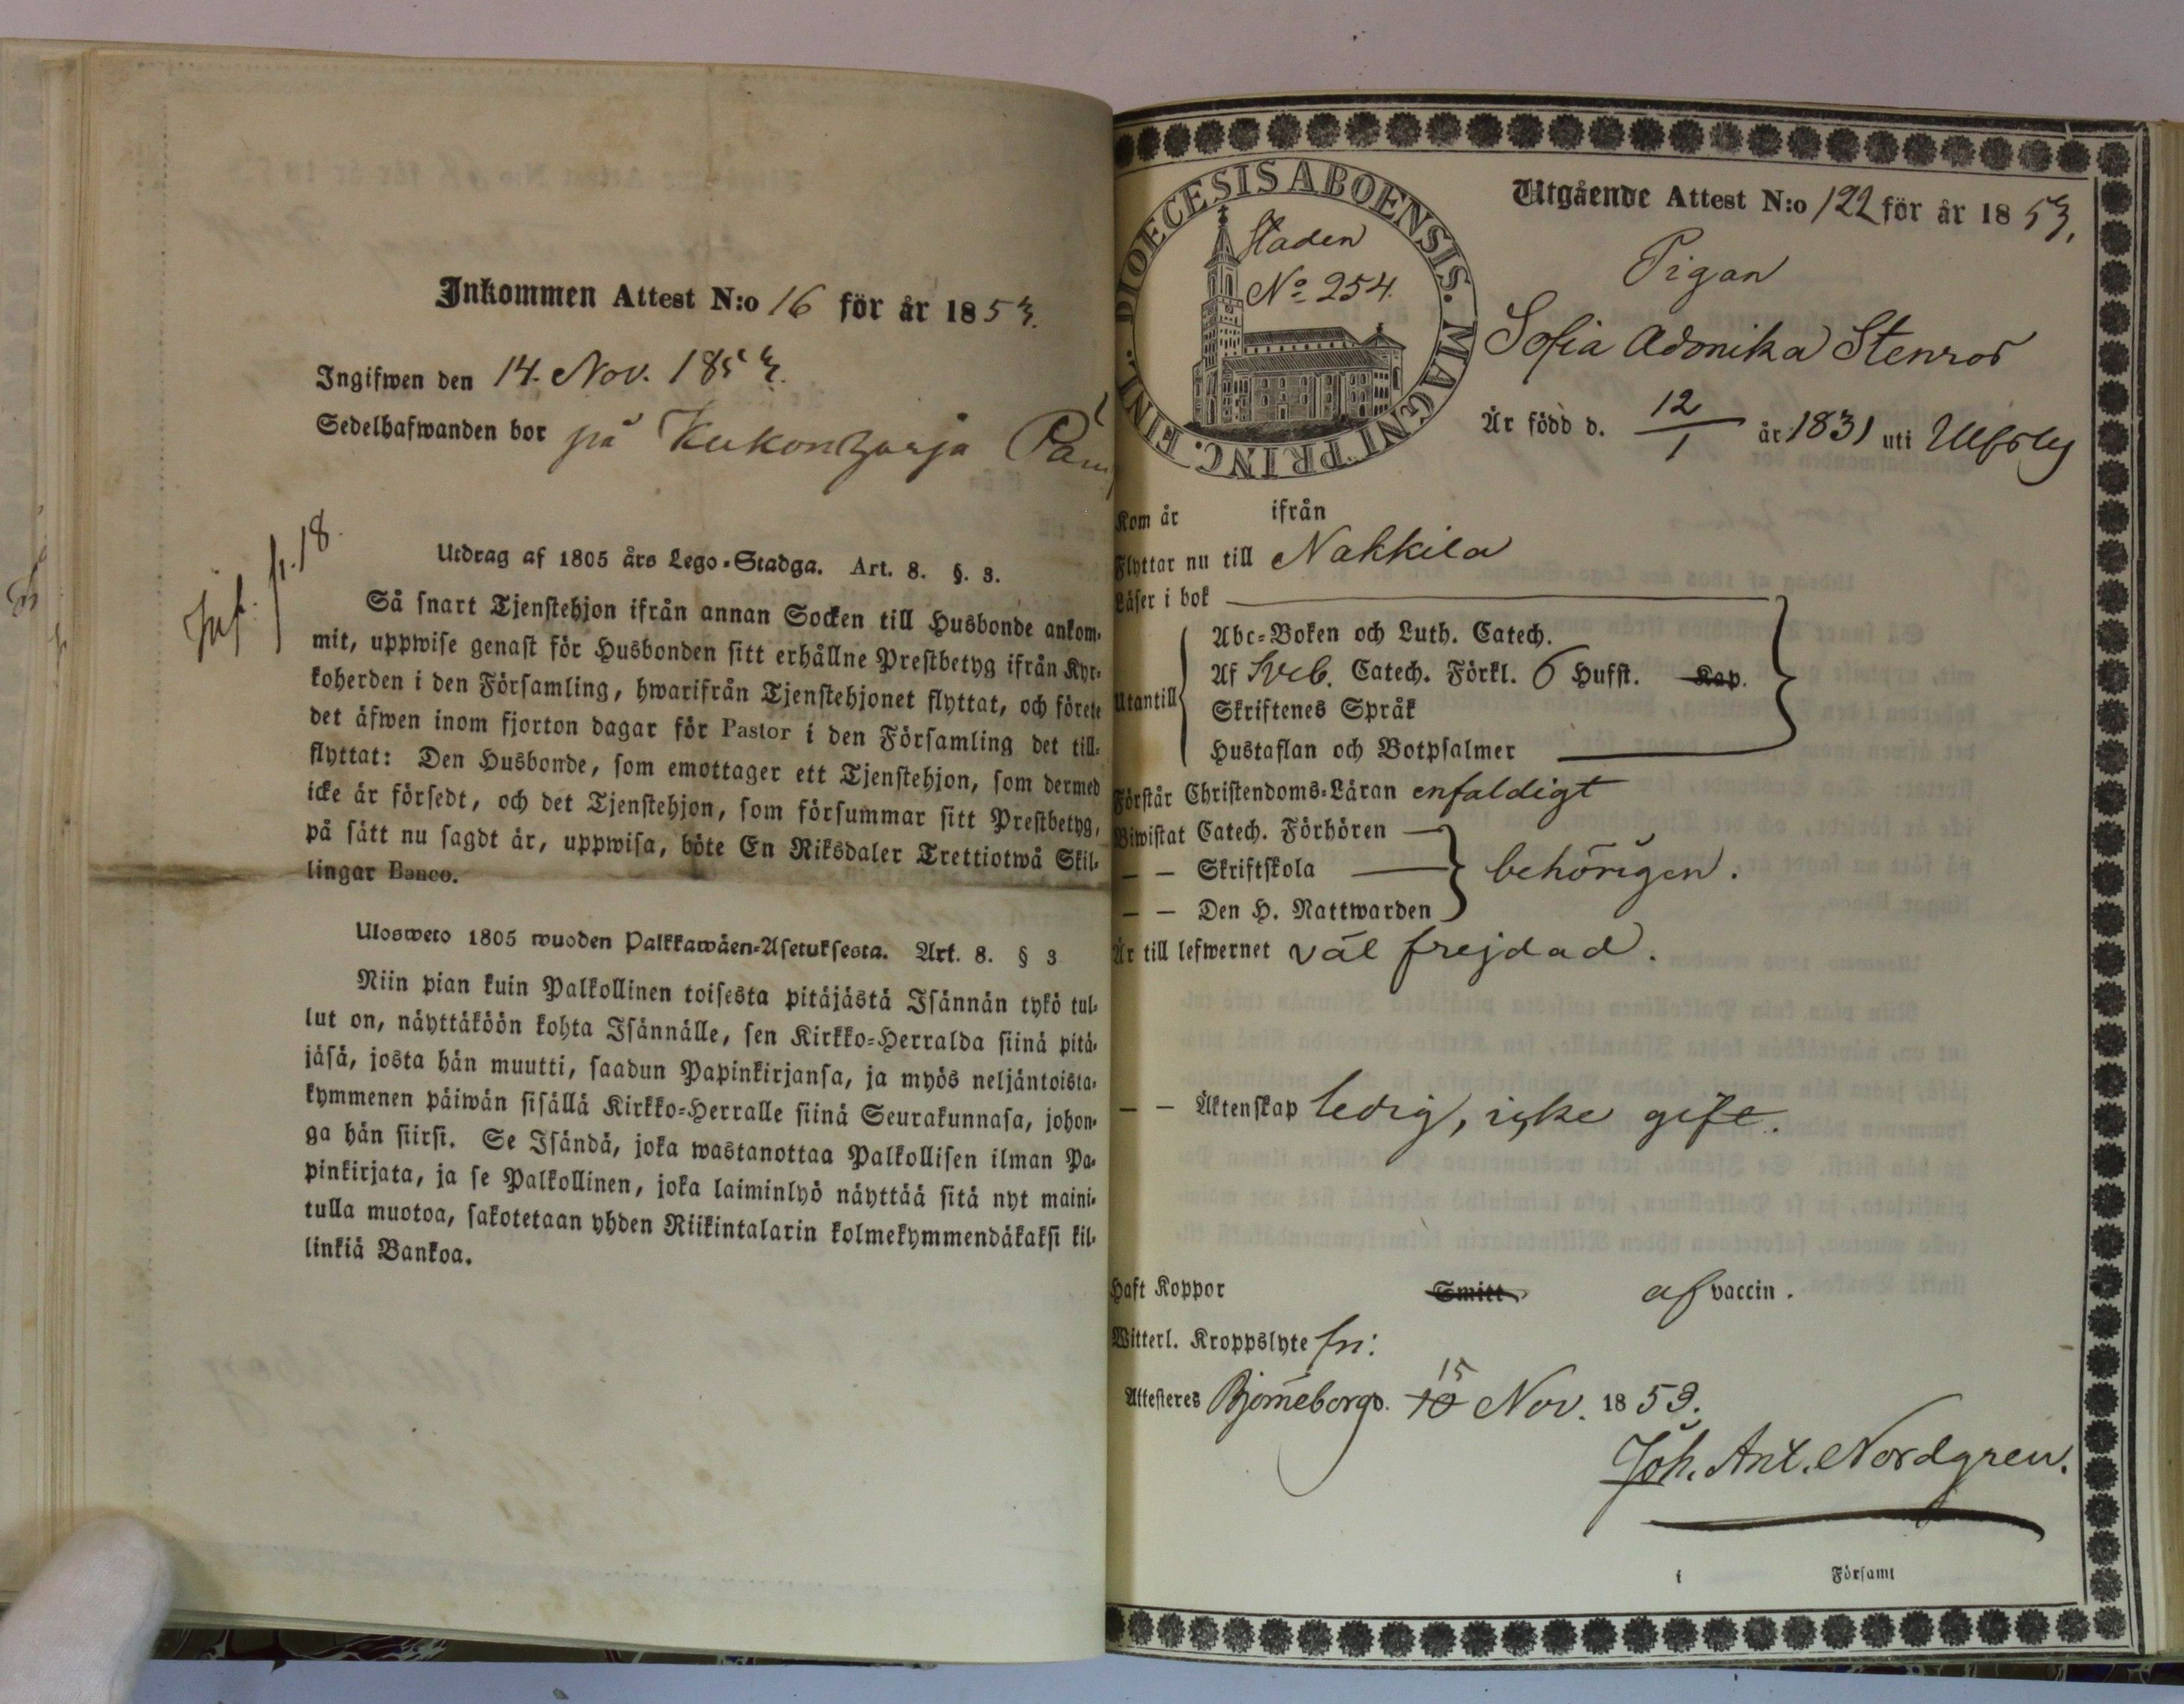 Inkommen Attest N:o 16 för år 1853.
Ingifwen den 14. Nov. 1853.
Sedelhafwanden bor på Kukonharja
Inf. p. 18.
Utdrag af 1805 års Lego-Stadga. Art. 8. §. 3.
Så snart Tjenstehjon ifrån annan Socken till Husbonde ankom-
mit, uppwise genast för Husbonden sitt erhållne Prestbetyg ifrån Kyr-
koherden i den Församling, hwarifrån Tjenstehjonet flyttat, och förete
det äfwen inom fjorton dagar för Pastor i den Församling det till-
flyttat: Den Husbonde, som emottager ett Tjenstehjon, som dermed
icke är försedt, och det Tjenstehjon, som försummar sitt Prestbetyg,
på sätt nu sagdt är, uppwisa, böte En Riksdaler Trettiotwå Skil-
lingar Banco.
Ulosweto 1805 wuoden Palkkawäen-Asetuksesta. Art. 8. § 3
Niin pian kuin Palkollinen toisesta pitäjästä Isännän tykö tul-
lut on, näyttäköön kohta Isännälle, sen Kirkko-Herralda siinä pitä-
jäsä, josta hän muutti, saadun Papinkirjansa, ja myös neljäntoista-
kymmenen päiwän sisällä Kirkko-Herralle siinä Seurakunnasa, johon-
ga hän siirsi. Se Isändä, joka wastanottaa Palkollisen ilman Pa-
pinkirjata, ja se Palkollinen, joka laiminlyö näyttää sitä nyt maini-
tulla muotoa, sakotetaan yhden Riikintalarin kolmekymmendäkaksi kil-
linkiä Bankoa.
DIOECESIS ABOENSIS. MAGNI PRINC. FINL.
Staden
No 254.
Utgående Attest N:o 122 för år 1853.
Pigan
Sofia Adonika Stenros
Är född d. 12/1 år 1831 uti Ulfsby
Kom år ifrån
Flyttar nu till Nakkila
Läser i bok
Utantill
Abc-Boken och Luth. Catech.
Af Sveb. Catech. Förkl. 6 Hufst. Kap.
Skriftenes Språk
Hustaflan och Botpsalmer
Förstår Christendoms-Läran enfaldigt
Biwistat Catech. Förhören
— — Skriftskola behörigen.
— — Den H. Nattwarden
Är till lefwernet väl frejdad.
— — Äktenskap ledig, icke gift.
Haft Koppor Smitt af vaccin.
Witterl. Kroppslyte fri:
15
Attesteres Björneborg d. 10 Nov. 1853.
Joh. Ant. Nordgren.
i Församl